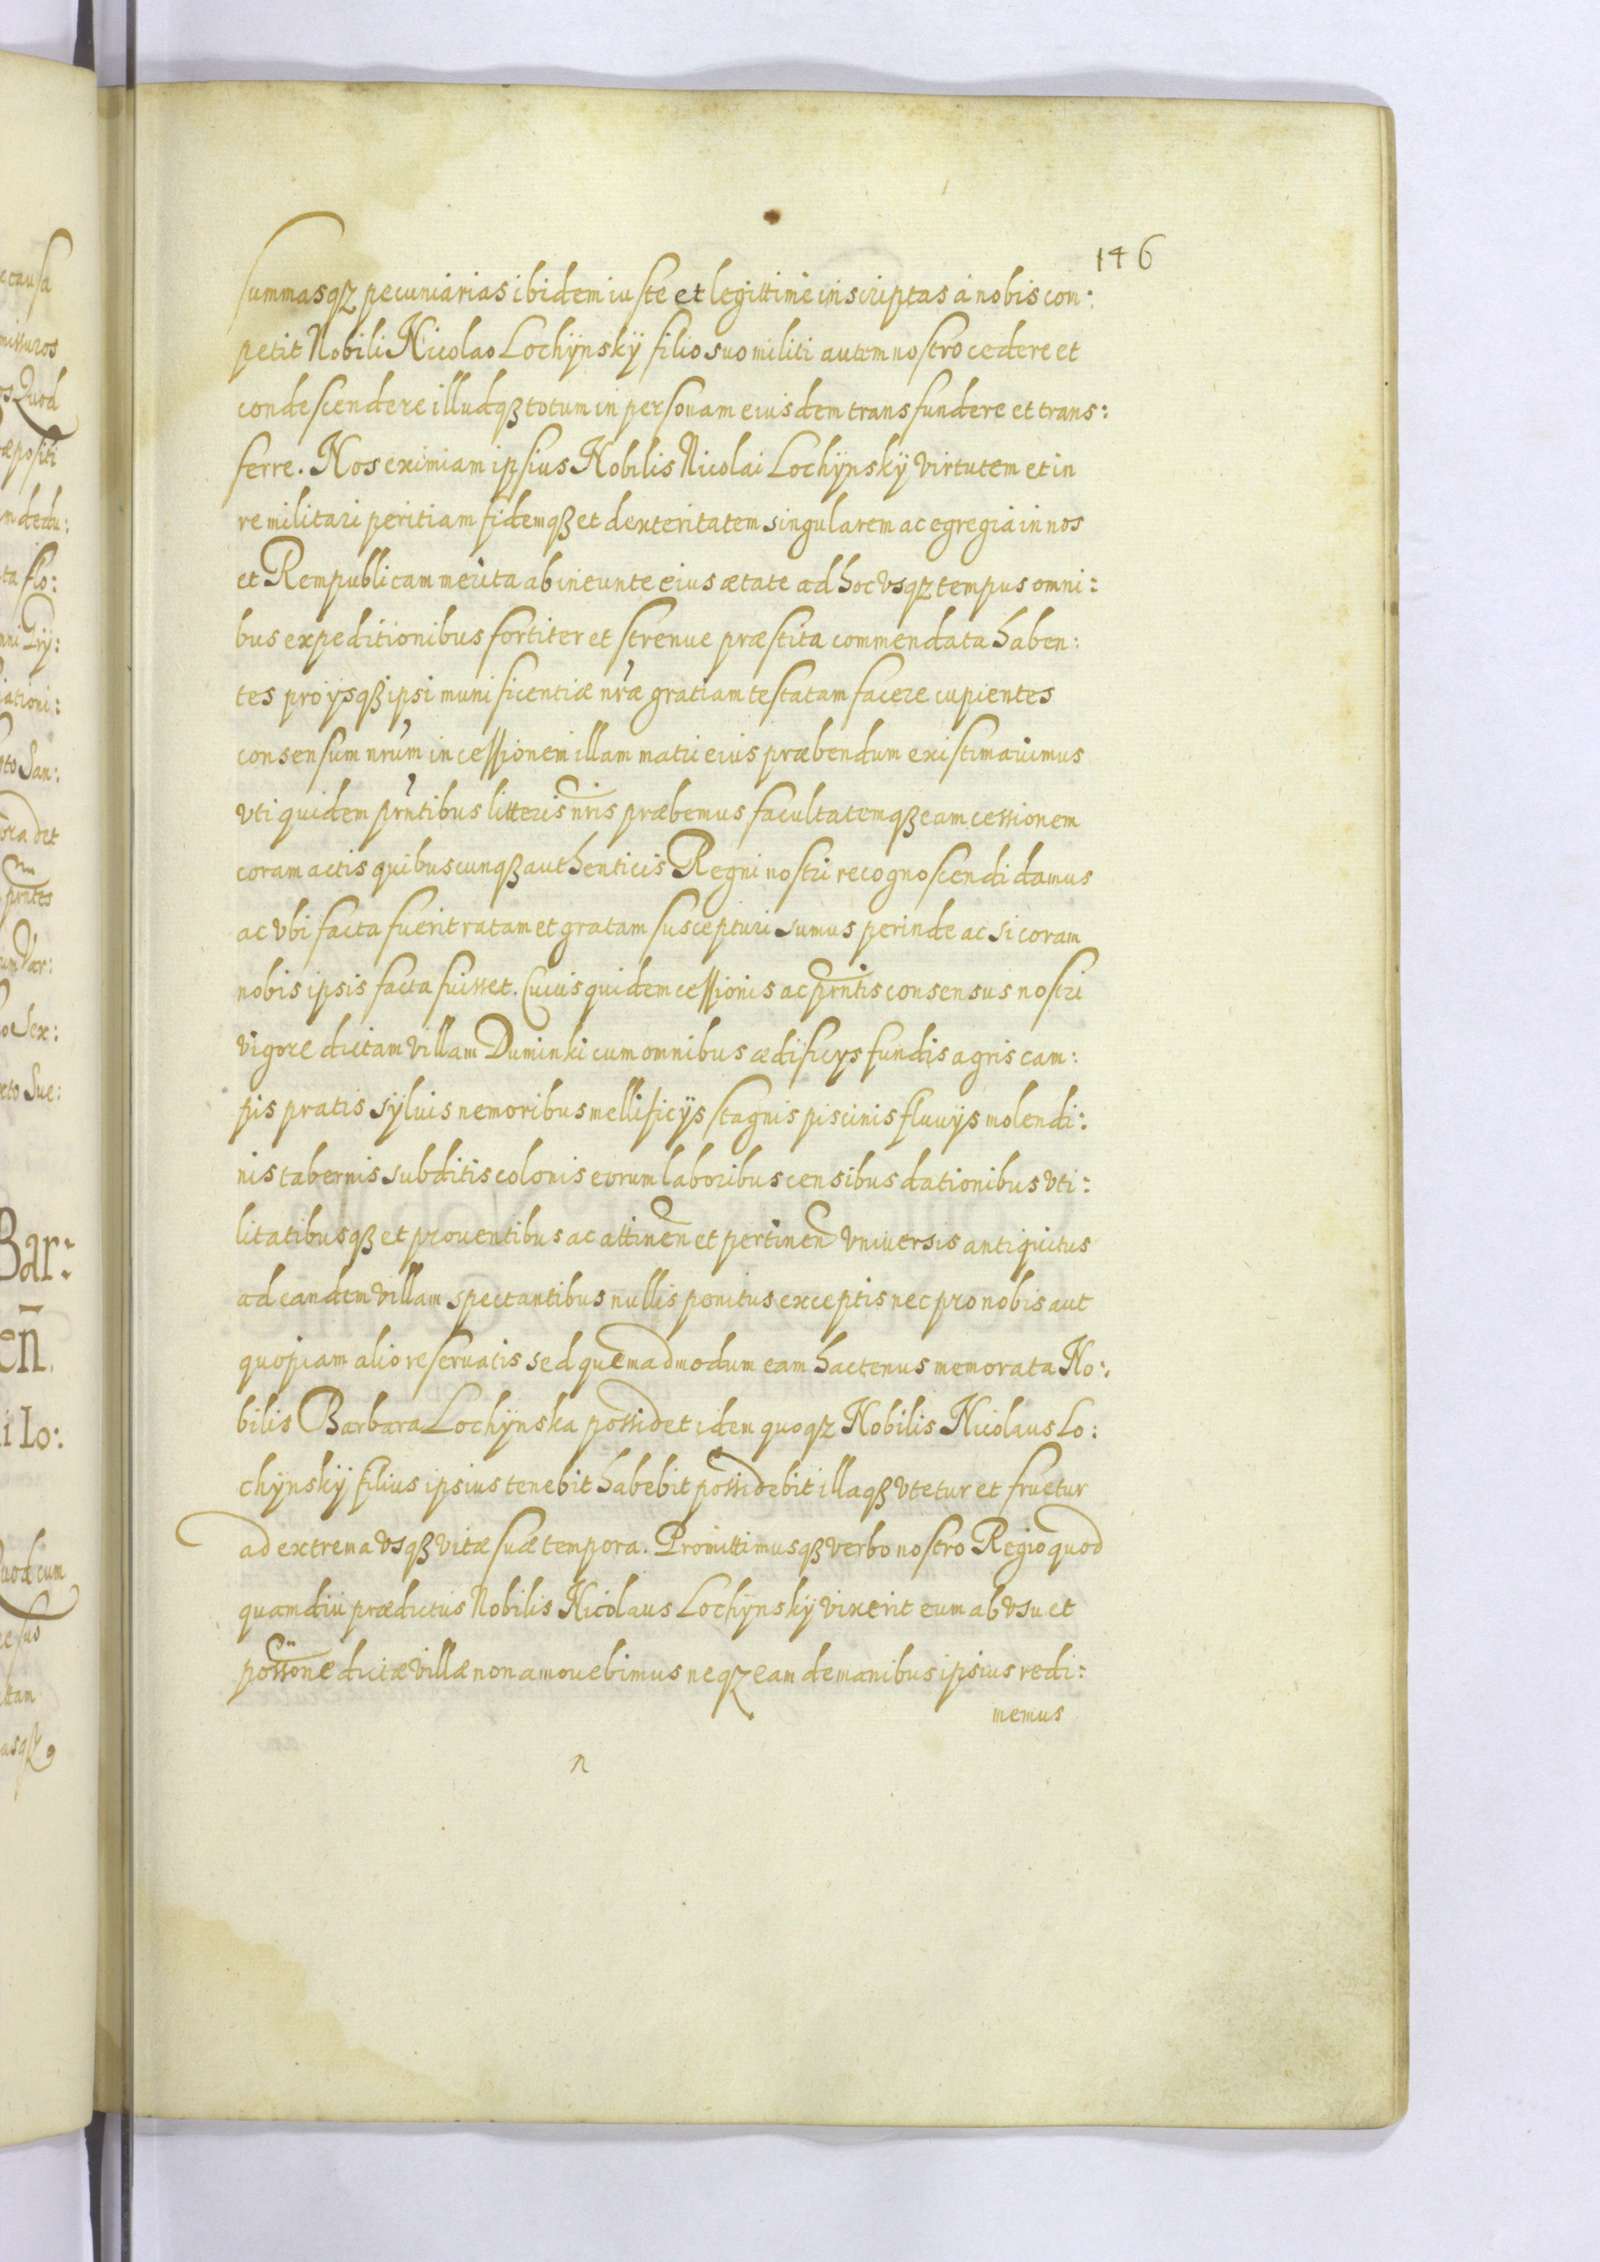 146
summasqz pecuniarias ibidem iuste et legittime inscriptas a nobis con:
petit Nobili Nicolao Lochÿnskÿ filio suo militi autem nostro cedere et
condescendere illudqz totum in personam eiusdem transfundere et trans:
ferre. Nos eximiam ipsius Nobilis Nicolai Lochÿnskÿ virtutem et in
re militari peritiam fidemqz et dexteritatem singularem ac egregia in nos
et Rempublicam merita ab ineunte eius ætate ad hoc vsqz tempus omni:
bus expeditionibus fortiter et strenue præstita commendata haben:
tes pro ÿsqz ipsi munificentiæ nr̃æ gratiam testatam facere cupientes
consensum nr̃um in cessionem illam matri eius præbendum existimauimus
vti quidem pr̃ntibus litteris nr̃is præbemus facultatemqz eam cessionem
coram actis quibuscunqz authenticis Regni nostri recognoscendi damus
ac vbi facta fuerit ratam et gratam suscepturi sumus perinde ac si coram
nobis ipsis facta fuisset. Cuius quidem cessionis ac pr̃ntis consensus nostri
vigore dictam villam Duminki cum omnibus ædificÿs fundis agris cam:
pis pratis sÿluis nemoribus mellificÿs stagnis piscinis fluuÿs molendi:
nis tabernis subditis colonis eorum laboribus censibus dationibus vti:
litatibusqz et prouentibus ac attinen̄ et pertinen̄ vniuersis antiquitus
ad eandem villam spectantibus nullis penitus exceptis nec pro nobis aut
quopiam alio reseruatis sed quemadmodum eam hactenus memorata No:
bilis Barbara Lochÿnska possidet idem quoqz Nobilis Nicolaus Lo:
chÿnskÿ filius ipsius tenebit habebit possidebit illaqz vtetur et fruetur
ad extrema vsqz vitæ suæ tempora. Promittimusqz verbo nostro Regio quod
quamdiu prædictus Nobilis Nicolaus Lochÿnskÿ vixerit eum ab vsu et
possone dictæ villæ non amouebimus neqz eam de manibus ipsius redi:
memus